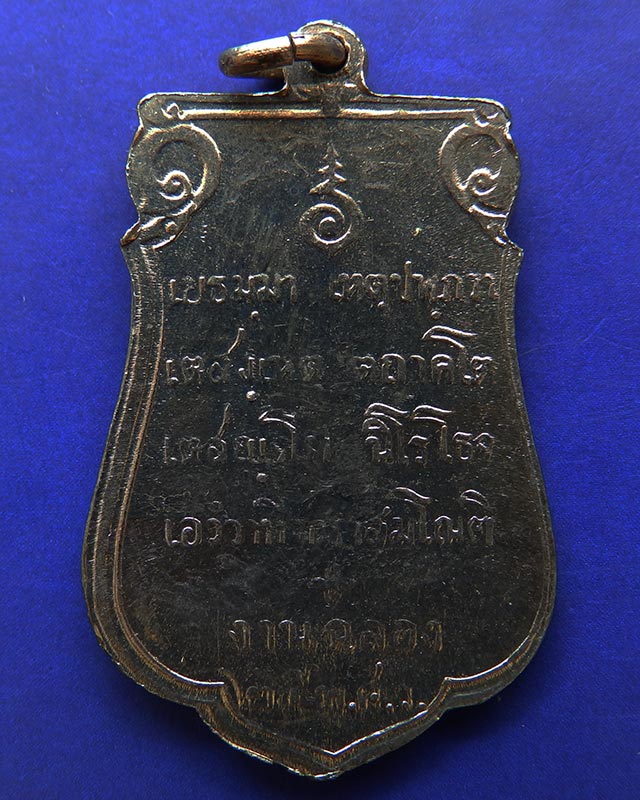 เยธมฺมา เหตุปฺปภวา
เตสํเหตุ ตถาคโต
เตสญฺโย นิโรโธจ
เอวํวาที สมโณติ
งานฉลอง